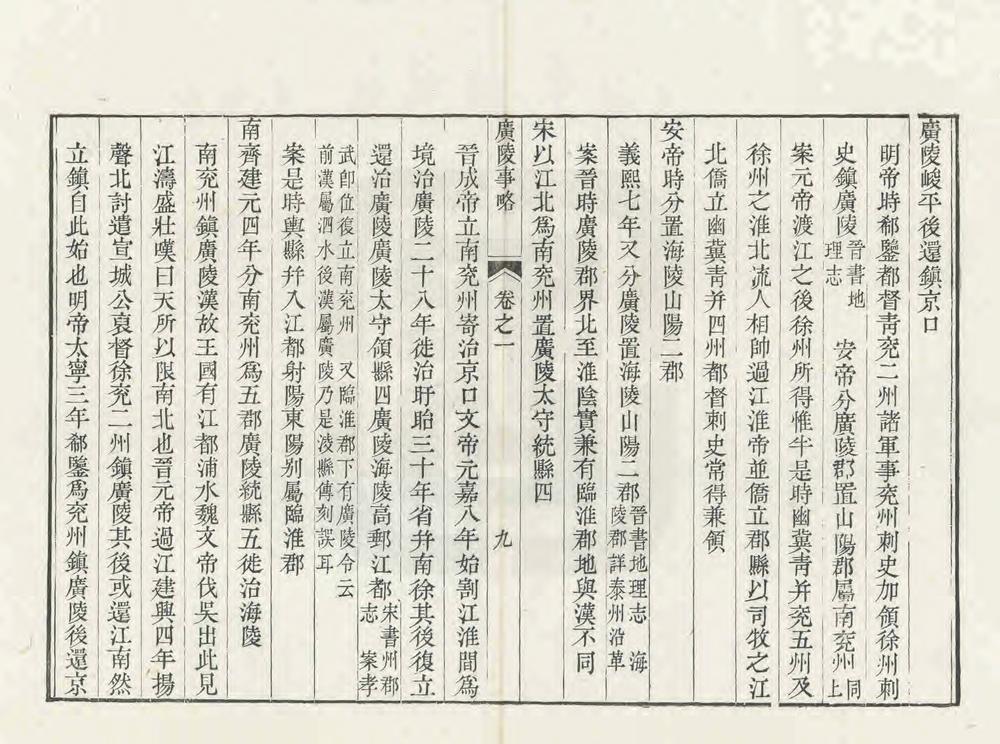 廣陵峻平後還鎮京口
明帝時郗鑒都督青兖二州諸軍事兖州刺史加領徐州刺
史鎮廣陵晉書地理志 安帝分廣陵郡置山陽郡屬南兖州同上
案元帝渡江之後徐州所得惟半是時幽冀青并兖五州及
徐州之淮北流人相帥過江淮帝並僑立郡縣以司牧之江
北僑立幽冀青并四州都督刺史常得兼領
安帝時分置海陵山陽二郡
義熙七年又分廣陵置海陵山陽二郡晉書地理志 海陵郡詳泰州沿革
案晉時廣陵郡界北至淮陰實兼有臨淮郡地與漢不同
宋以江北爲南兖州置廣陵太守統縣四
廣陵事略 卷之一 九
晉成帝立南兖州寄治京口文帝元嘉八年始割江淮間爲
境治廣陵二十八年徙治盱眙三十年省幷南徐其後復立
還治廣陵廣陵太守領縣四廣陵海陵高郵江都宋書州郡志 案孝
武卽位復立南兖州 又臨淮郡下有廣陵令云
前漢屬泗水後漢屬廣陵乃是淩縣傳刻誤耳
案是時輿縣幷入江都射陽東陽别屬臨淮郡
南齊建元四年分南兖州爲五郡廣陵統縣五徙治海陵
南兖州鎮廣陵漢故王國有江都浦水魏文帝伐吳出此見
江濤盛壯嘆曰天所以限南北也晉元帝過江建興四年揚
聲北討遣宣城公裒督徐兖二州鎮廣陵其後或還江南然
立鎮自此始也明帝太寧三年郗鑒爲兖州鎮廣陵後還京